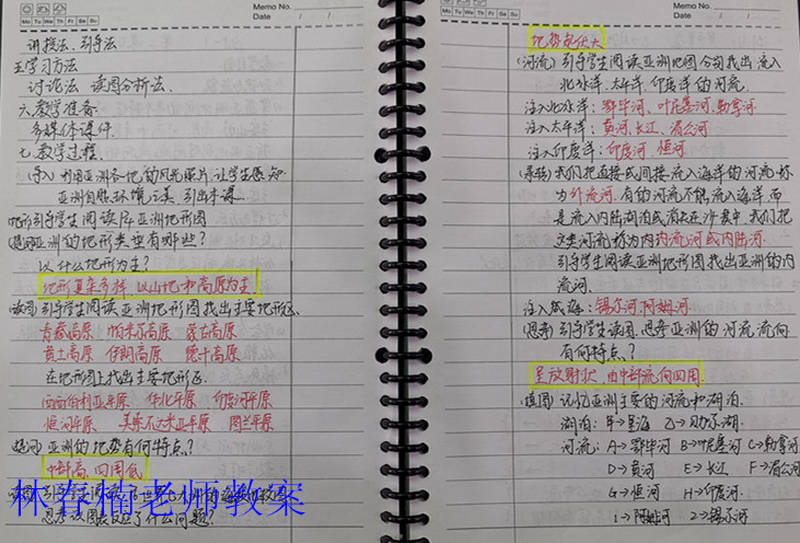 Memo No.
Mo Tu We Th Fr Sa Su
Date / /
讲授法、引导法
五.学习方法
讨论法 读图分析法.
六.教学准备.
多媒体课件.
七.教学过程.
(导入) 利用亚洲各地的风光照片,让学生感知
亚洲自然环境之美,引出本课.
(地形) 引导学生阅读 亚洲地形图
(提问) 亚洲的地形类型有哪些?
以什么地形为主?
地形复杂多样,以山地和高原为主.
(读图) 引导学生阅读亚洲地形图找出主要地形区.
青藏高原 帕米尔高原 蒙古高原
黄土高原 伊朗高原 德干高原
在地形图上找出主要地形区.
西西伯利亚平原 华北平原 印度河平原
恒河平原 美索不达米亚平原 图兰平原
(提问) 亚洲的地势有何特点?
中部高,四周低
林春楠老师教案
思考该图表反应了什么问题?
Memo No.
Mo Tu We Th Fr Sa Su
Date / /
地势起伏大
(河流) 引导学生阅读亚洲地图分别找出流入
北冰洋、太平洋、印度洋的河流.
注入北冰洋: 鄂毕河、叶尼塞河、勒拿河
注入太平洋: 黄河、长江、湄公河
注入印度洋: 印度河、恒河
(承转) 我们把直接或间接流入海洋的河流称
为外流河.有的河流不能流入海洋,而
是流入内陆湖泊或消失在沙漠中,我们把
这类河流称为内流河或内陆河.
引导学生阅读亚洲地形图找出亚洲的内
流河.
注入咸海: 锡尔河.阿姆河
(思考) 引导学生读图,思考亚洲的河流流向
有何特点?
呈放射状,由中部流向四周.
(填图) 记忆亚洲主要的河流和湖泊.
湖泊: 甲→里海 乙→贝加尔湖.
河流: A→鄂毕河 B→叶尼塞河 C→勒拿河
D→黄河 E→长江 F→湄公河
G→恒河 H→印度河.
1→阿姆河 2→锡尔河